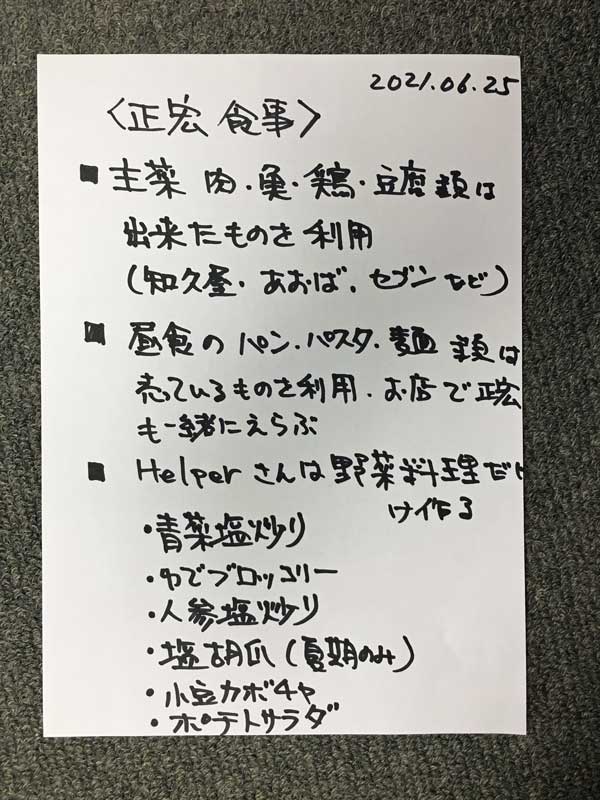 2021.06.25
〈正宏 食事〉
■ 主菜 肉・魚・鶏・豆腐類は
出来たものを利用
(知久屋・あおば、セブンなど)
■ 昼食のパン・パスタ・麺類は
売っているものを利用・お店で正宏
も一緒にえらぶ
■ Helperさんは野菜料理だけ
け作る
・青菜塩炒り
・ゆでブロッコリー
・人参塩炒り
・塩胡瓜(夏期のみ)
・小豆カボチャ
・ポテトサラダ